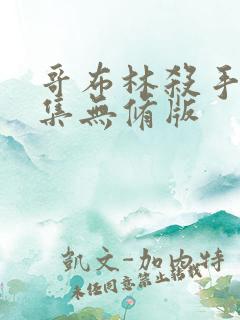 哥布林殺手
集無修版
凱文-加內特
未经同意禁止转载